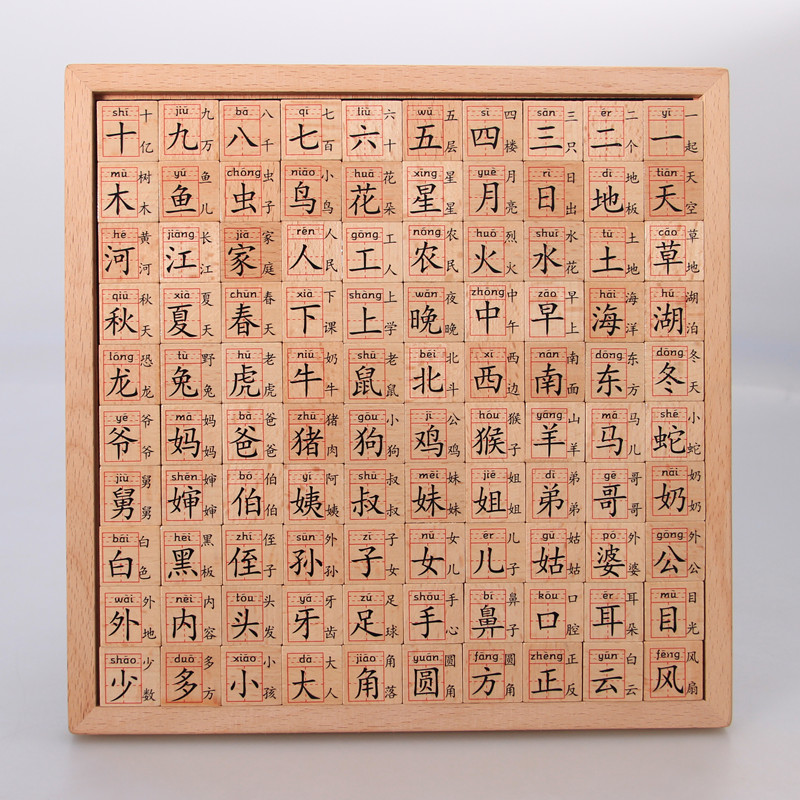 shí 十 十亿 jiǔ 九 九万 bā 八 八千 qī 七 七百 liù 六 六十 wǔ 五 五层 sì 四 四楼 sān 三 三只 èr 二 二个 yī 一 一起
mù 木 树木 yú 鱼 鱼儿 chóng 虫 虫子 niǎo 鸟 小鸟 huā 花 花朵 xīng 星 星星 yuè 月 月亮 rì 日 日出 dì 地 地板 tiān 天 天空
hé 河 黄河 jiāng 江 长江 jiā 家 家庭 rén 人 人民 gōng 工 工人 nóng 农 农民 huǒ 火 烈火 shuǐ 水 水花 tǔ 土 土地 cǎo 草 草地
qiū 秋 秋天 xià 夏 夏天 chūn 春 春天 xià 下 下课 shàng 上 上学 wǎn 晚 夜晚 zhōng 中 中午 zǎo 早 早上 hǎi 海 海洋 hú 湖 湖泊
lóng 龙 恐龙 tù 兔 野兔 hǔ 虎 老虎 niú 牛 奶牛 shǔ 鼠 老鼠 běi 北 北斗 xī 西 西边 nán 南 南面 dōng 东 东方 dōng 冬 冬天
yé 爷 爷爷 mā 妈 妈妈 bà 爸 爸爸 zhū 猪 猪肉 gǒu 狗 小狗 jī 鸡 公鸡 hóu 猴 猴子 yáng 羊 山羊 mǎ 马 马儿 shé 蛇 小蛇
jiù 舅 舅舅 shěn 婶 婶婶 bó 伯 伯伯 yí 姨 阿姨 shū 叔 叔叔 mèi 妹 妹妹 jiě 姐 姐姐 dì 弟 弟弟 gē 哥 哥哥 nǎi 奶 奶奶
bái 白 白色 hēi 黑 黑板 zhí 侄 侄子 sūn 孙 外孙 zǐ 子 子女 nǚ 女 女儿 ér 儿 儿子 gū 姑 姑姑 pó 婆 外婆 gōng 公 外公
wài 外 外地 nèi 内 内容 tóu 头 头发 yá 牙 牙齿 zú 足 足球 shǒu 手 手心 bí 鼻 鼻子 kǒu 口 口腔 ěr 耳 耳朵 mù 目 目光
shǎo 少 少数 duō 多 多方 xiǎo 小 小孩 dà 大 大人 jiǎo 角 角落 yuán 圆 圆角 fāng 方 圆方 zhèng 正 正反 yún 云 白云 fēng 风 风扇